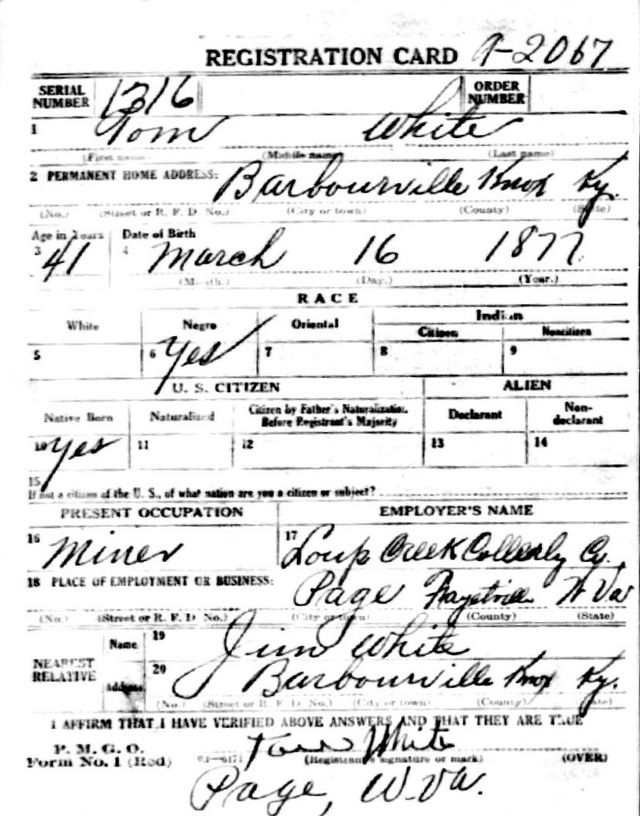 REGISTRATION CARD A-2067
SERIAL NUMBER 1316 ORDER NUMBER
1 Tom White
(First name) (Middle name) (Last name)
2 PERMANENT HOME ADDRESS: Barbourville Knox Ky.
(No.) (Street or R. F. D. No.) (City or town) (County) (State)
Age in Years Date of Birth
3 41 4 March 16 1877
(Month.) (Day.) (Year.)
RACE
White Negro Oriental Indian
Citizen Noncitizen
5 6 Yes 7 8 9
U. S. CITIZEN ALIEN
Native Born Naturalized Citizen by Father's Naturalization Before Registrant's Majority Declarant Non-declarant
10 Yes 11 12 13 14
15
If not a citizen of the U. S., of what nation are you a citizen or subject?
PRESENT OCCUPATION EMPLOYER'S NAME
16 Miner 17 Loup Creek Colleraly Co.
18 PLACE OF EMPLOYMENT OR BUSINESS:
Page W Va
(No.) (Street or R. F. D. No.) (City or town) (County) (State)
NEAREST RELATIVE Name 19 Jim White
Address 20 Barbourville Knox Ky.
(No.) (Street or R. F. D. No.) (City or town) (County) (State)
I AFFIRM THAT I HAVE VERIFIED ABOVE ANSWERS AND THAT THEY ARE TRUE
P. M. G. O.
Form No. 1 (Red) Tom White
(Registrant's signature or mark) (OVER)
Page, W. Va.